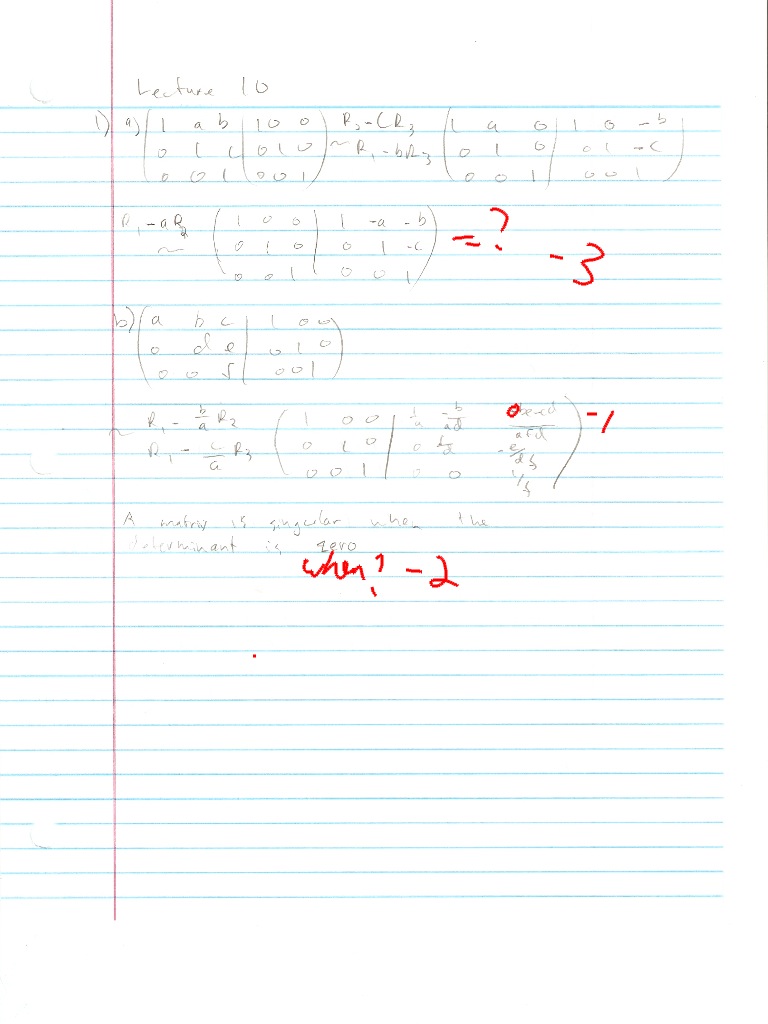 Lecture 10
1) a) ( 1 a b | 1 0 0 ) R2-CR3 ( 1 a 0 | 1 0 -b )
( 0 1 c | 0 1 0 ) ~ R1-bR3 ( 0 1 0 | 0 1 -c )
( 0 0 1 | 0 0 1 ) ( 0 0 1 | 0 0 1 )
R1-aR2 ( 1 0 0 | 1 -a -b ) =? -3
~ ( 0 1 0 | 0 1 -c )
( 0 0 1 | 0 0 1 )
b) ( a b c | 1 0 0 )
( 0 d e | 0 1 0 )
( 0 0 f | 0 0 1 )
~ R1 - b/a R2 ( 1 0 0 | 1/a -b/ad be-cd/afd ) -1
R1 - c/a R3 ( 0 1 0 | 0 1/d -e/df )
( 0 0 1 | 0 0 1/f )
A matrix is singular when the
determinant is zero
when? -2